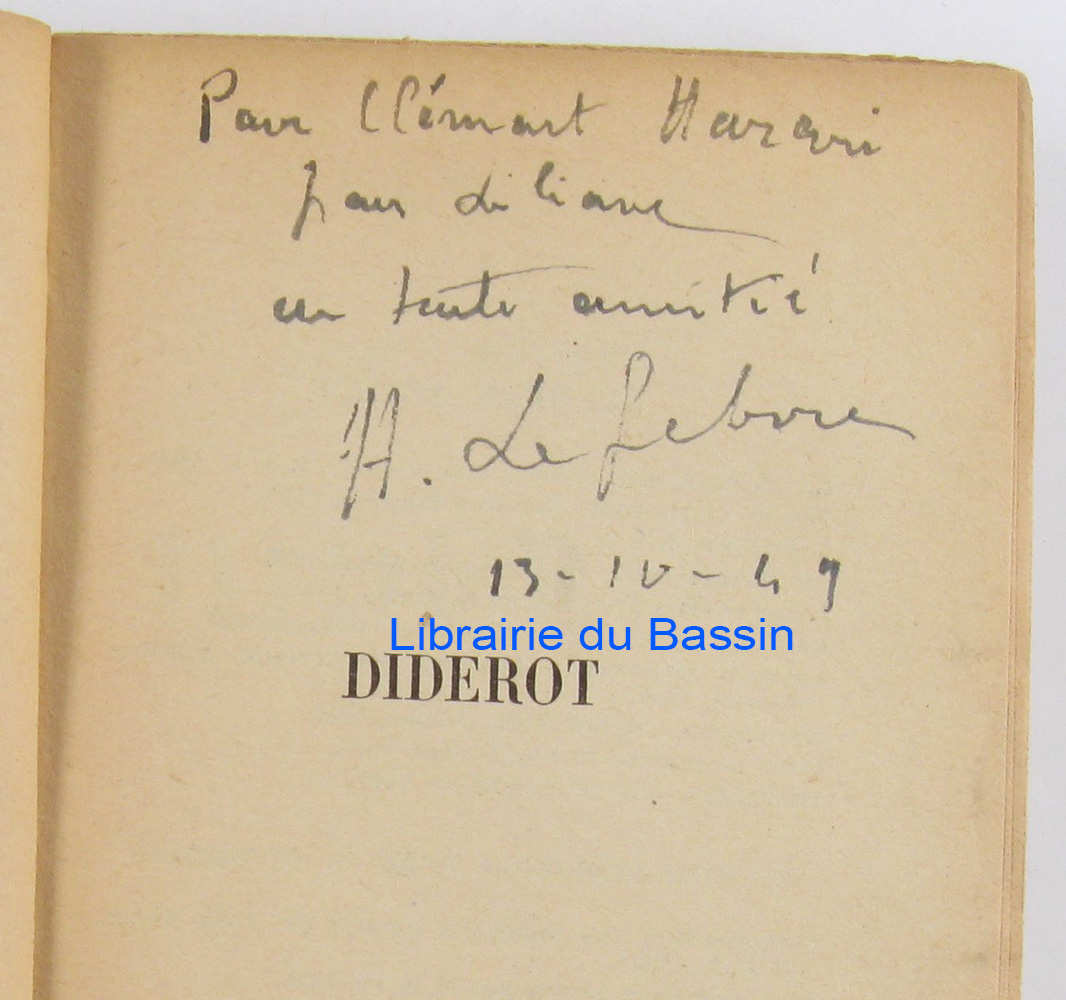 Pour Clément Harari
pour Liliane
en toute amitié
H. Lefebvre
13-IV-49
Librairie du Bassin
DIDEROT